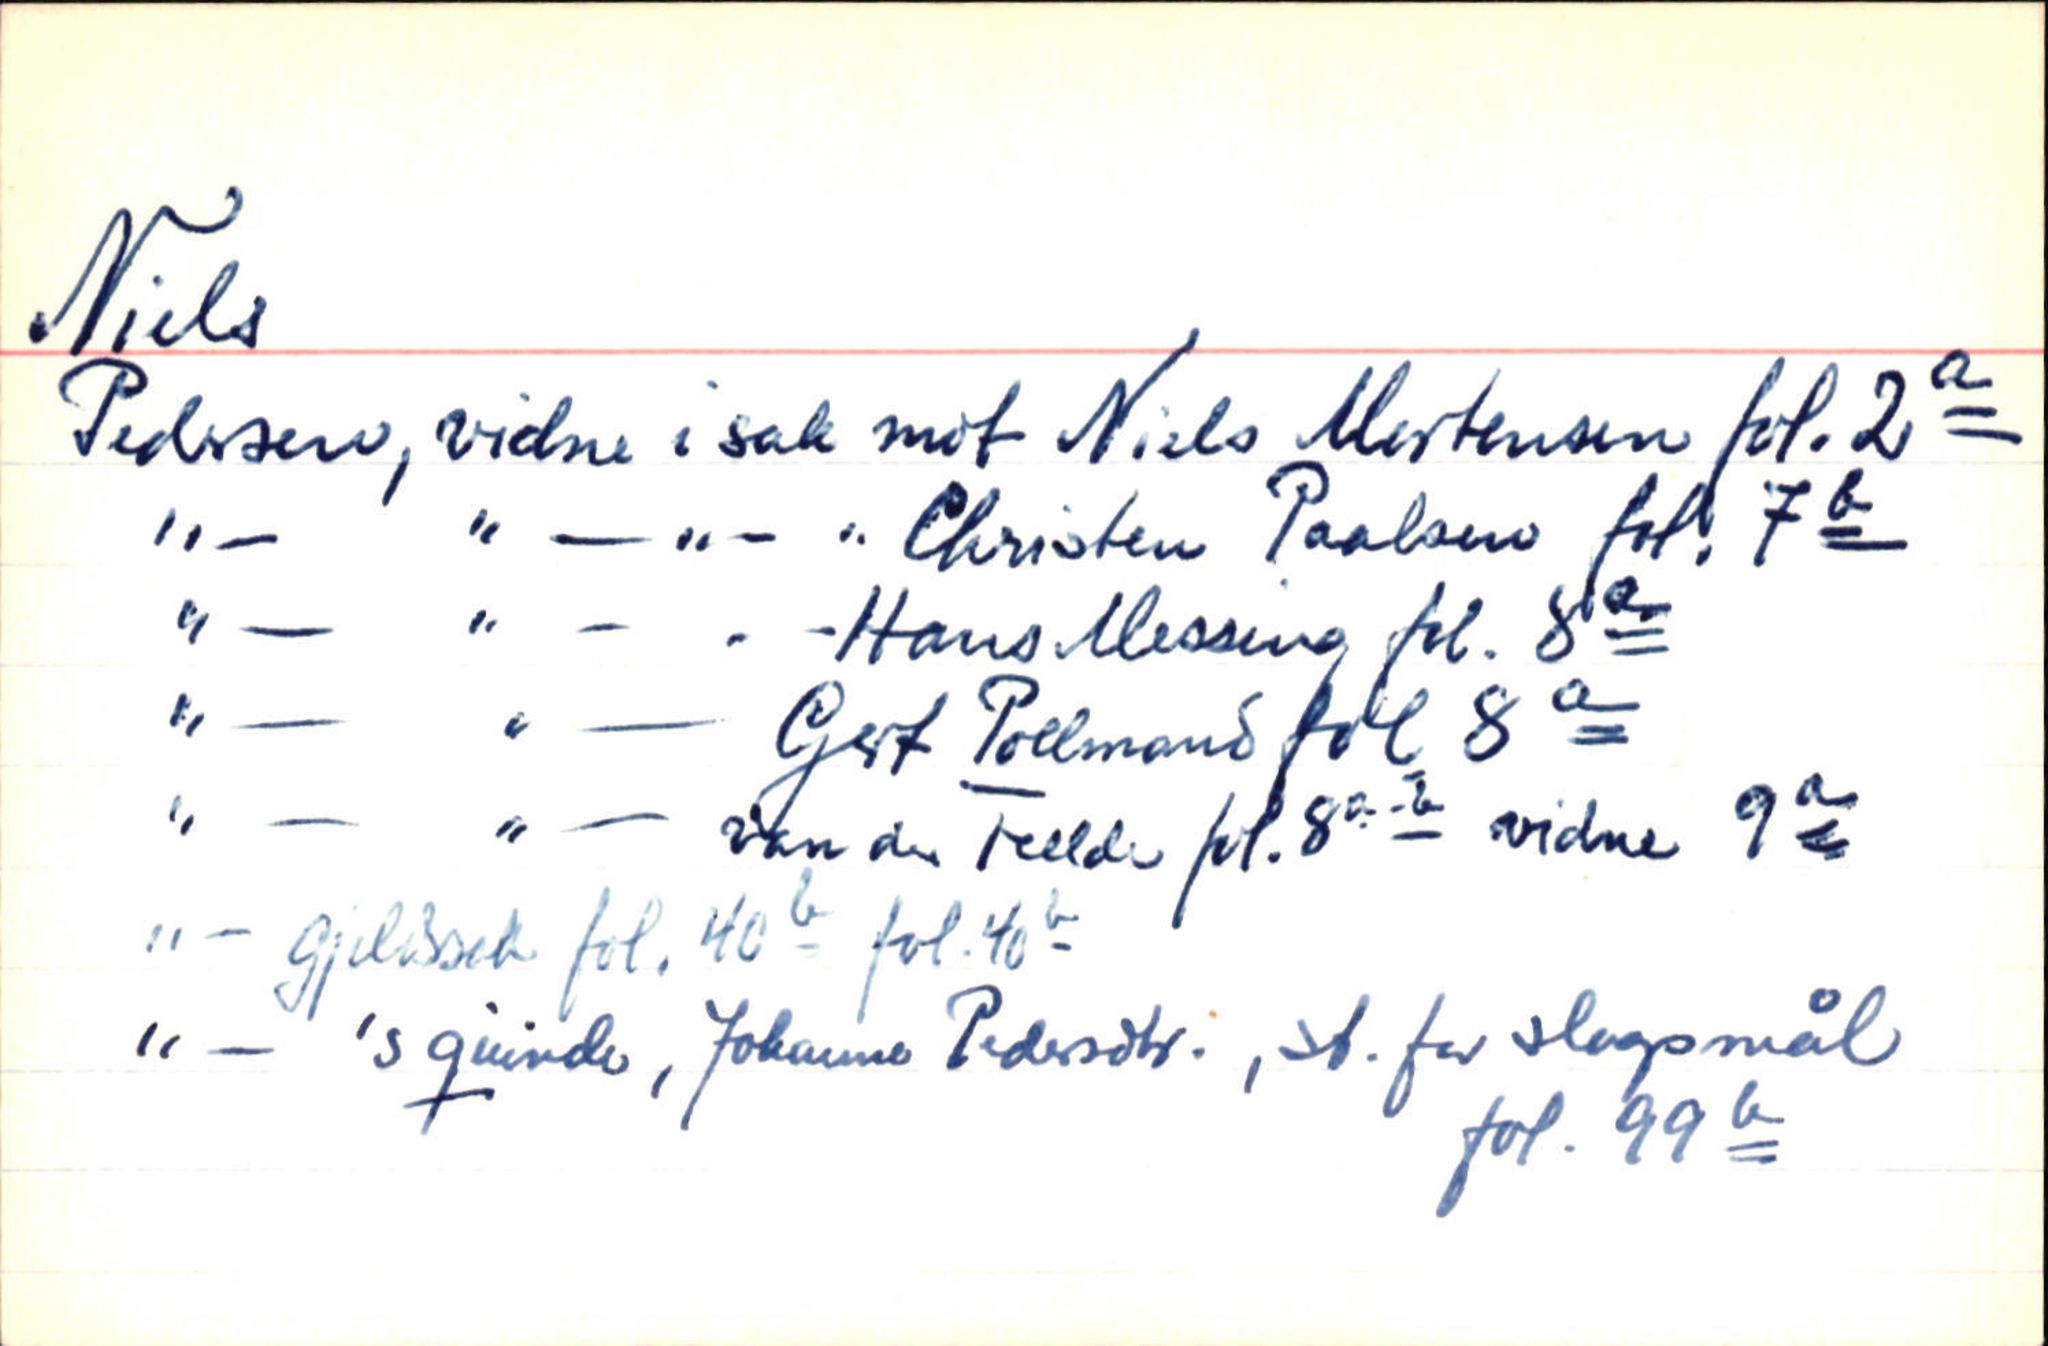 Niels
Pedersen, vidne i sak mot Niels Mortensen fol. 2a
"— " — " — " Christen Paalsen fol. 7b
" — " — " — Hans Messing fol. 8a
" — " — Gert Pollmand fol. 8a
" — " — van der Feelde fol. 8a-b vidne 9a
" — gjeldssak fol. 40b fol. 40b
" — 's quinde, Johanne Pedersdtr., st. for slagsmål
fol. 99b